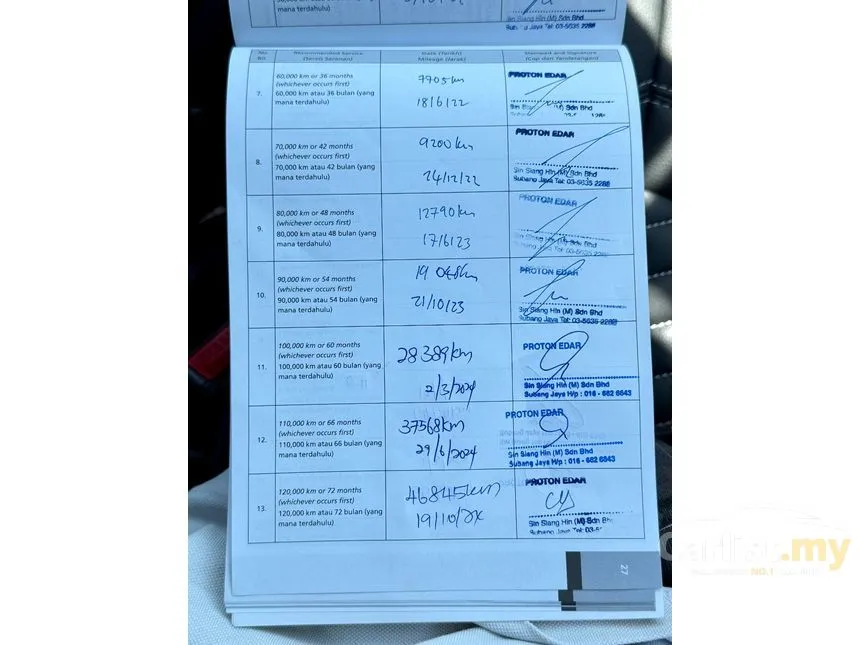 mana terdahulu)
Sin Siang Hin (M) Sdn Bhd
Subang Jaya Tel: 03-5635 2288
No.
Bil
Recommended Service
(Servis Saranan)
Date (Tarikh)
Mileage (Jarak)
Stamped and Signature
(Cop dan Tandatangan)
7.
60,000 km or 36 months
(whichever occurs first)
60,000 km atau 36 bulan (yang
mana terdahulu)
7705km
18/6/22
PROTON EDAR
(M) Sdn Bhd
8.
70,000 km or 42 months
(whichever occurs first)
70,000 km atau 42 bulan (yang
mana terdahulu)
9200km
24/12/22
PROTON EDAR
Sin Siang Hin (M) Sdn Bhd
Subang Jaya Tel: 03-5635 2288
9.
80,000 km or 48 months
(whichever occurs first)
80,000 km atau 48 bulan (yang
mana terdahulu)
12790km
17/6/23
PROTON EDAR
Sin Siang Hin (M) Sdn Bhd
Subang Jaya Tel: 03-5635 2288
10.
90,000 km or 54 months
(whichever occurs first)
90,000 km atau 54 bulan (yang
mana terdahulu)
19 048km
21/10/23
PROTON EDAR
Sin Siang Hin (M) Sdn Bhd
Subang Jaya Tel: 03-5635 2288
11.
100,000 km or 60 months
(whichever occurs first)
100,000 km atau 60 bulan (yang
mana terdahulu)
28389km
2/3/2024
PROTON EDAR
Sin Siang Hin (M) Sdn Bhd
Subang Jaya H/p : 016 - 662 6643
12.
110,000 km or 66 months
(whichever occurs first)
110,000 km atau 66 bulan (yang
mana terdahulu)
37568km
29/6/2024
PROTON EDAR
Sin Siang Hin (M) Sdn Bhd
Subang Jaya H/p : 016 - 662 6643
13.
120,000 km or 72 months
(whichever occurs first)
120,000 km atau 72 bulan (yang
mana terdahulu)
46845km
19/10/2x
PROTON EDAR
Sin Siang Hin (M) Sdn Bhd
Subang Jaya Tel: 03-5
27
Carlist.my
NO.1